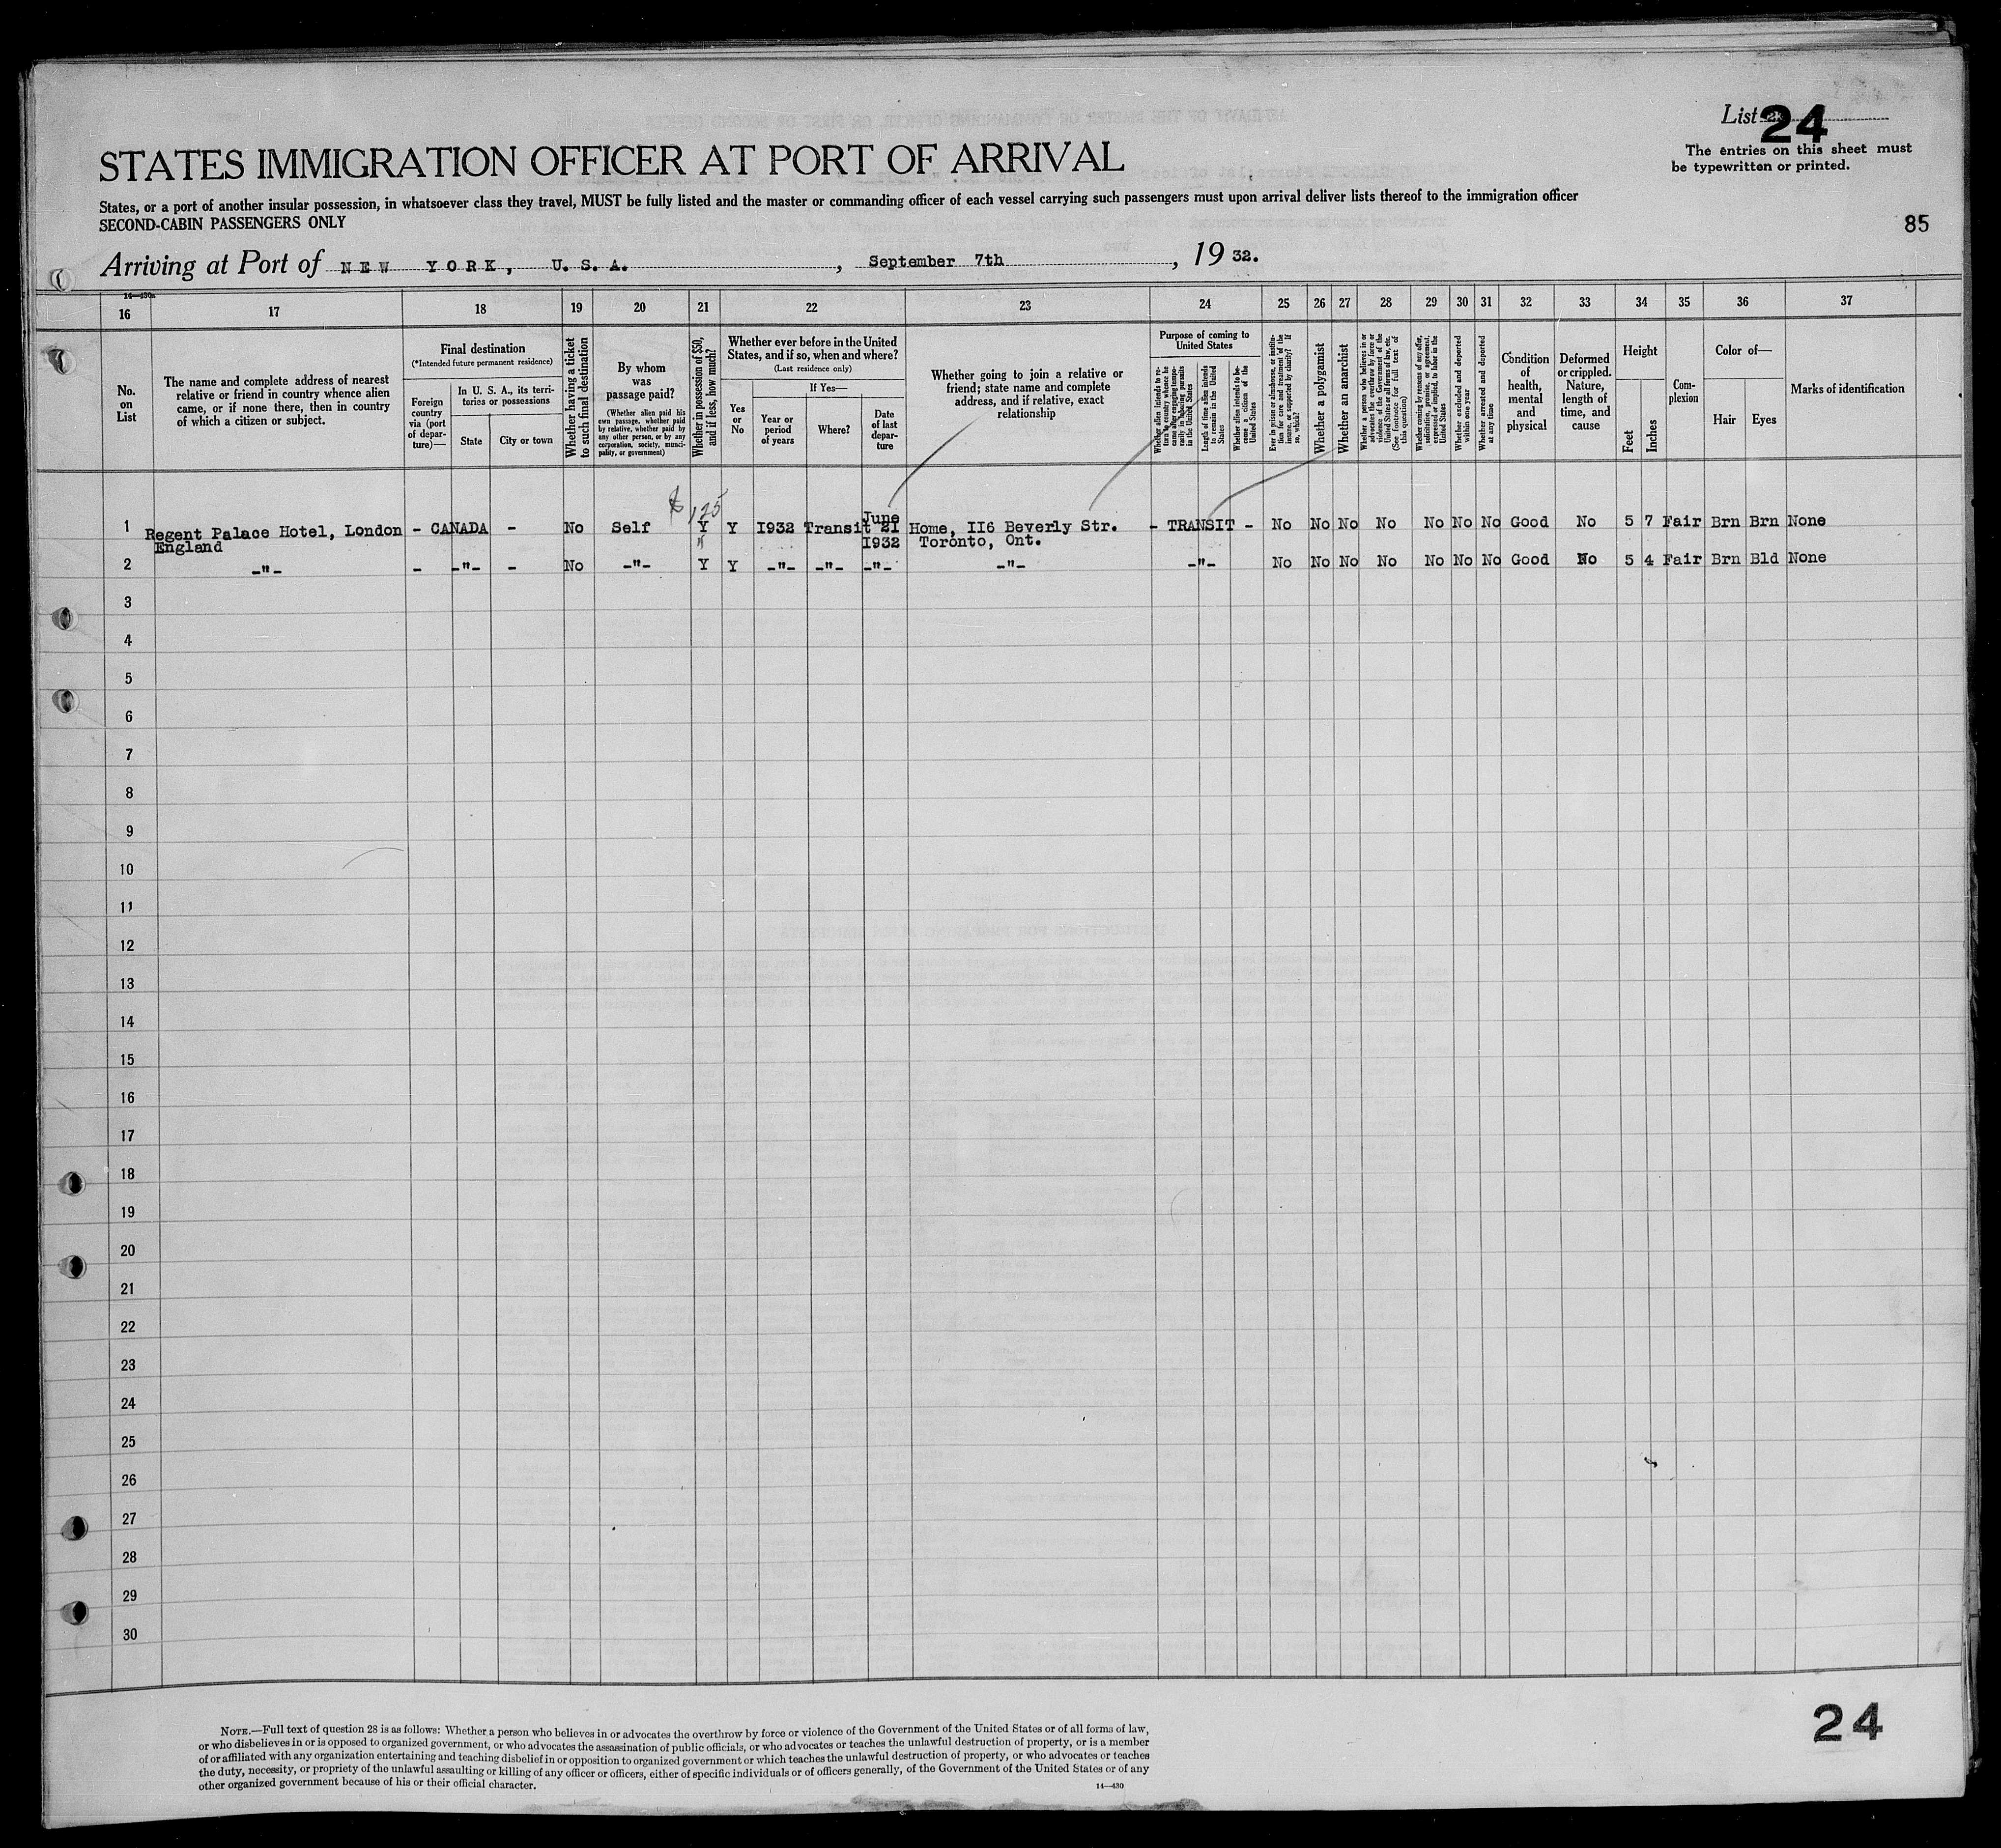 List 24
The entries on this sheet must
be typewritten or printed.
STATES IMMIGRATION OFFICER AT PORT OF ARRIVAL
States, or a port of another insular possession, in whatsoever class they travel, MUST be fully listed and the master or commanding officer of each vessel carrying such passengers must upon arrival deliver lists thereof to the immigration officer
SECOND-CABIN PASSENGERS ONLY
85
Arriving at Port of NEW YORK, U. S. A. , September 7th , 19 32.
14—430a
16 17 18 19 20 21 22 23 24 25 26 27 28 29 30 31 32 33 34 35 36 37
No.
on
List
The name and complete address of nearest
relative or friend in country whence alien
came, or if none there, then in country
of which a citizen or subject.
Final destination
(*Intended future permanent residence)
Foreign
country
via (port
of depar-
ture)—
In U. S. A., its terri-
tories or possessions
State
City or town
Whether having a ticket
to such final destination
By whom
was
passage paid?
(Whether alien paid his
own passage, whether paid
by relative, whether paid by
any other person, or by any
corporation, society, munici-
pality, or government)
Whether in possession of $50,
and if less, how much?
Whether ever before in the United
States, and if so, when and where?
(Last residence only)
Yes
or
No
If Yes—
Year or
period
of years
Where?
Date
of last
depar-
ture
Whether going to join a relative or
friend; state name and complete
address, and if relative, exact
relationship
Purpose of coming to
United States
Whether alien intends to re-
turn to country whence he
came after engaging tempo-
rarily in laboring pursuits
in the United States
Length of time alien intends
to remain in the United
States
Whether alien intends to be-
come a citizen of the
United States
Ever in prison or almshouse, or institu-
tion for care and treatment of the
insane, or supported by charity? If
so, which?
Whether a polygamist
Whether an anarchist
Whether a person who believes in or
advocates the overthrow by force or
violence of the Government of the
United States or all forms of law, etc.
(See footnote for full text of
this question)
Whether coming by reason of any offer,
solicitation, promise, or agreement,
expressed or implied, to labor in the
United States
Whether excluded and deported
within one year
Whether arrested and deported
at any time
Condition
of
health,
mental
and
physical
Deformed
or crippled.
Nature,
length of
time, and
cause
Height
Feet
Inches
Com-
plexion
Color of—
Hair Eyes
Marks of identification
$125
1 Regent Palace Hotel, London - CANADA - No Self Y Y I932 Transit June 21 Home, II6 Beverly Str. - TRANSIT - No No No No No No No Good No 5 7 Fair Brn Brn None
England I932 Toronto, Ont.
2 -"- - -"- - No -"- Y Y -"- -"- -"- -"- -"- No No No No No No No Good No 5 4 Fair Brn Bld None
3
4
5
6
7
8
9
10
11
12
13
14
15
16
17
18
19
20
21
22
23
24
25
26
27
28
29
30
24
NOTE.—Full text of question 28 is as follows: Whether a person who believes in or advocates the overthrow by force or violence of the Government of the United States or of all forms of law,
or who disbelieves in or is opposed to organized government, or who advocates the assassination of public officials, or who advocates or teaches the unlawful destruction of property, or is a member
of or affiliated with any organization entertaining and teaching disbelief in or opposition to organized government or which teaches the unlawful destruction of property, or who advocates or teaches
the duty, necessity, or propriety of the unlawful assaulting or killing of any officer or officers, either of specific individuals or of officers generally, of the Government of the United States or of any
other organized government because of his or their official character.
14—430